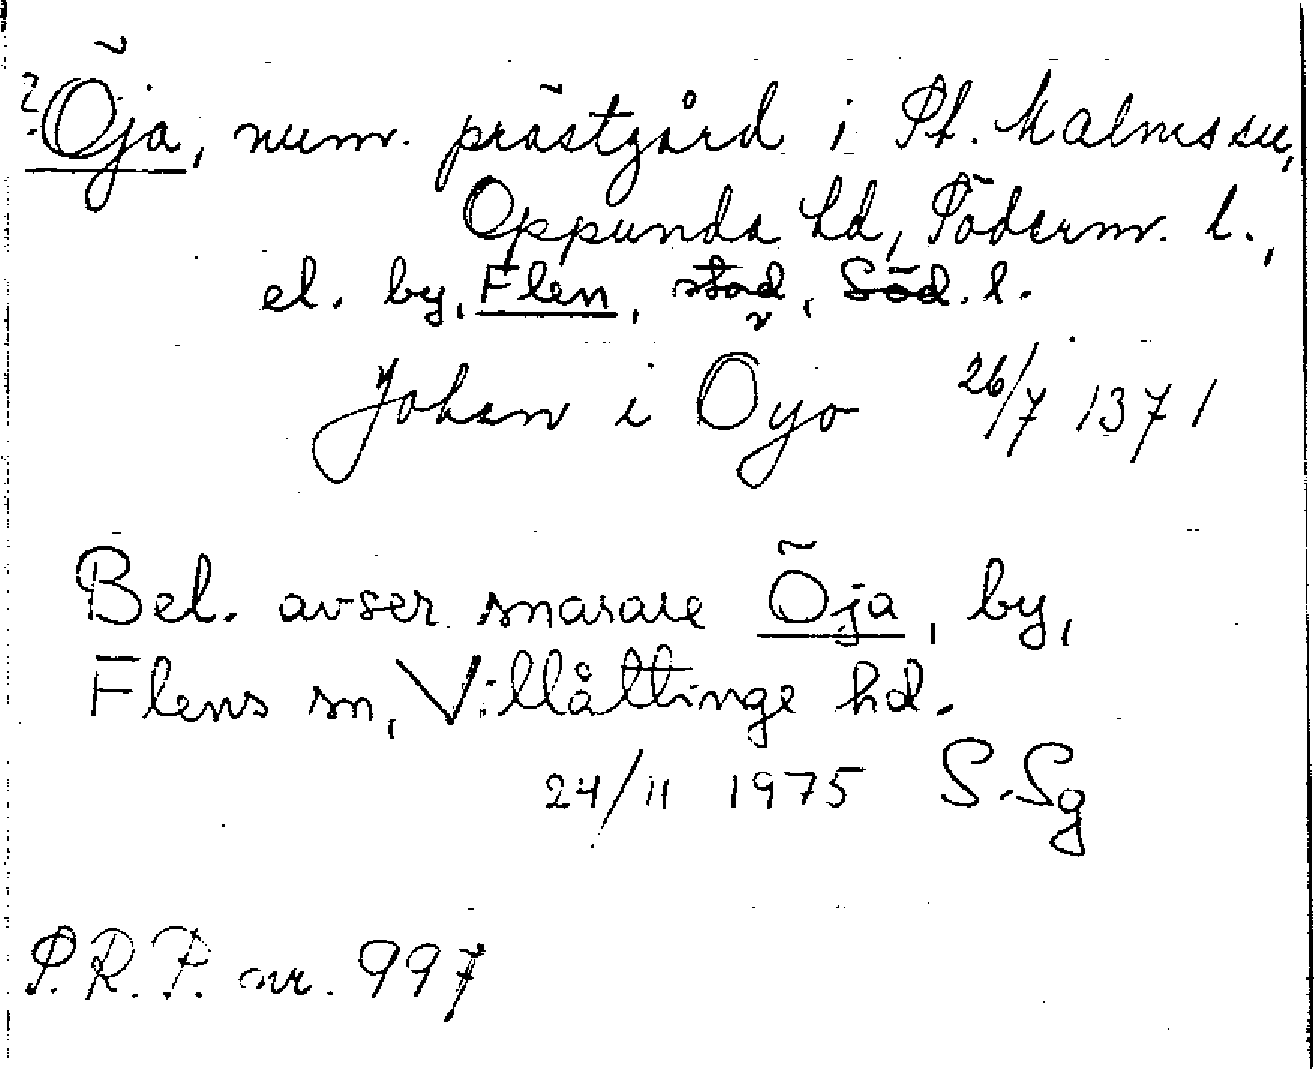 ? Öja, num. prästgård i St. Malms sn,
Oppunda hd, Söderm. l.,
el. by, Flen, stad, Söd. l.
Johan i Oyo 26/7 1371
Bel. avser snarare Öja, by,
Flens sn, Villåttinge hd.
24/11 1975 S.Sg
P.R.P. nr. 997